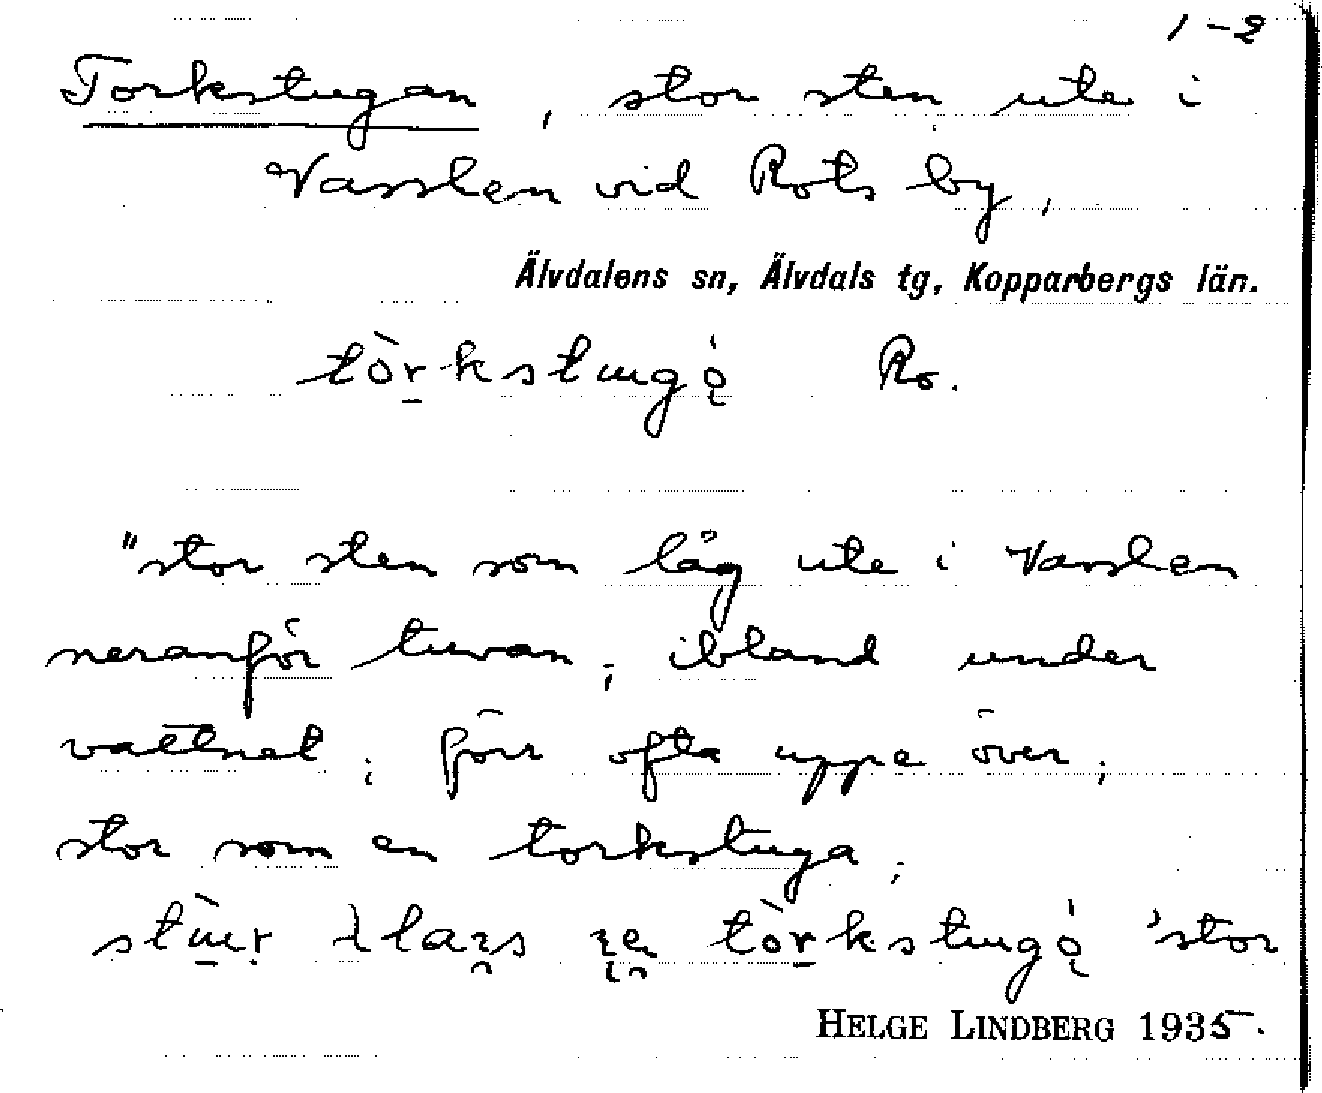 1-2
Torkstugan, stor sten ute i
Vasslen vid Rots by,
Älvdalens sn, Älvdals tg, Kopparbergs län.
Ro.
"stor sten som låg ute i Vasslen
neranför tuvan; ibland under
vattnet; förr ofta uppe över;
stor som en torkstuga;
'stor
HELGE LINDBERG 1935.